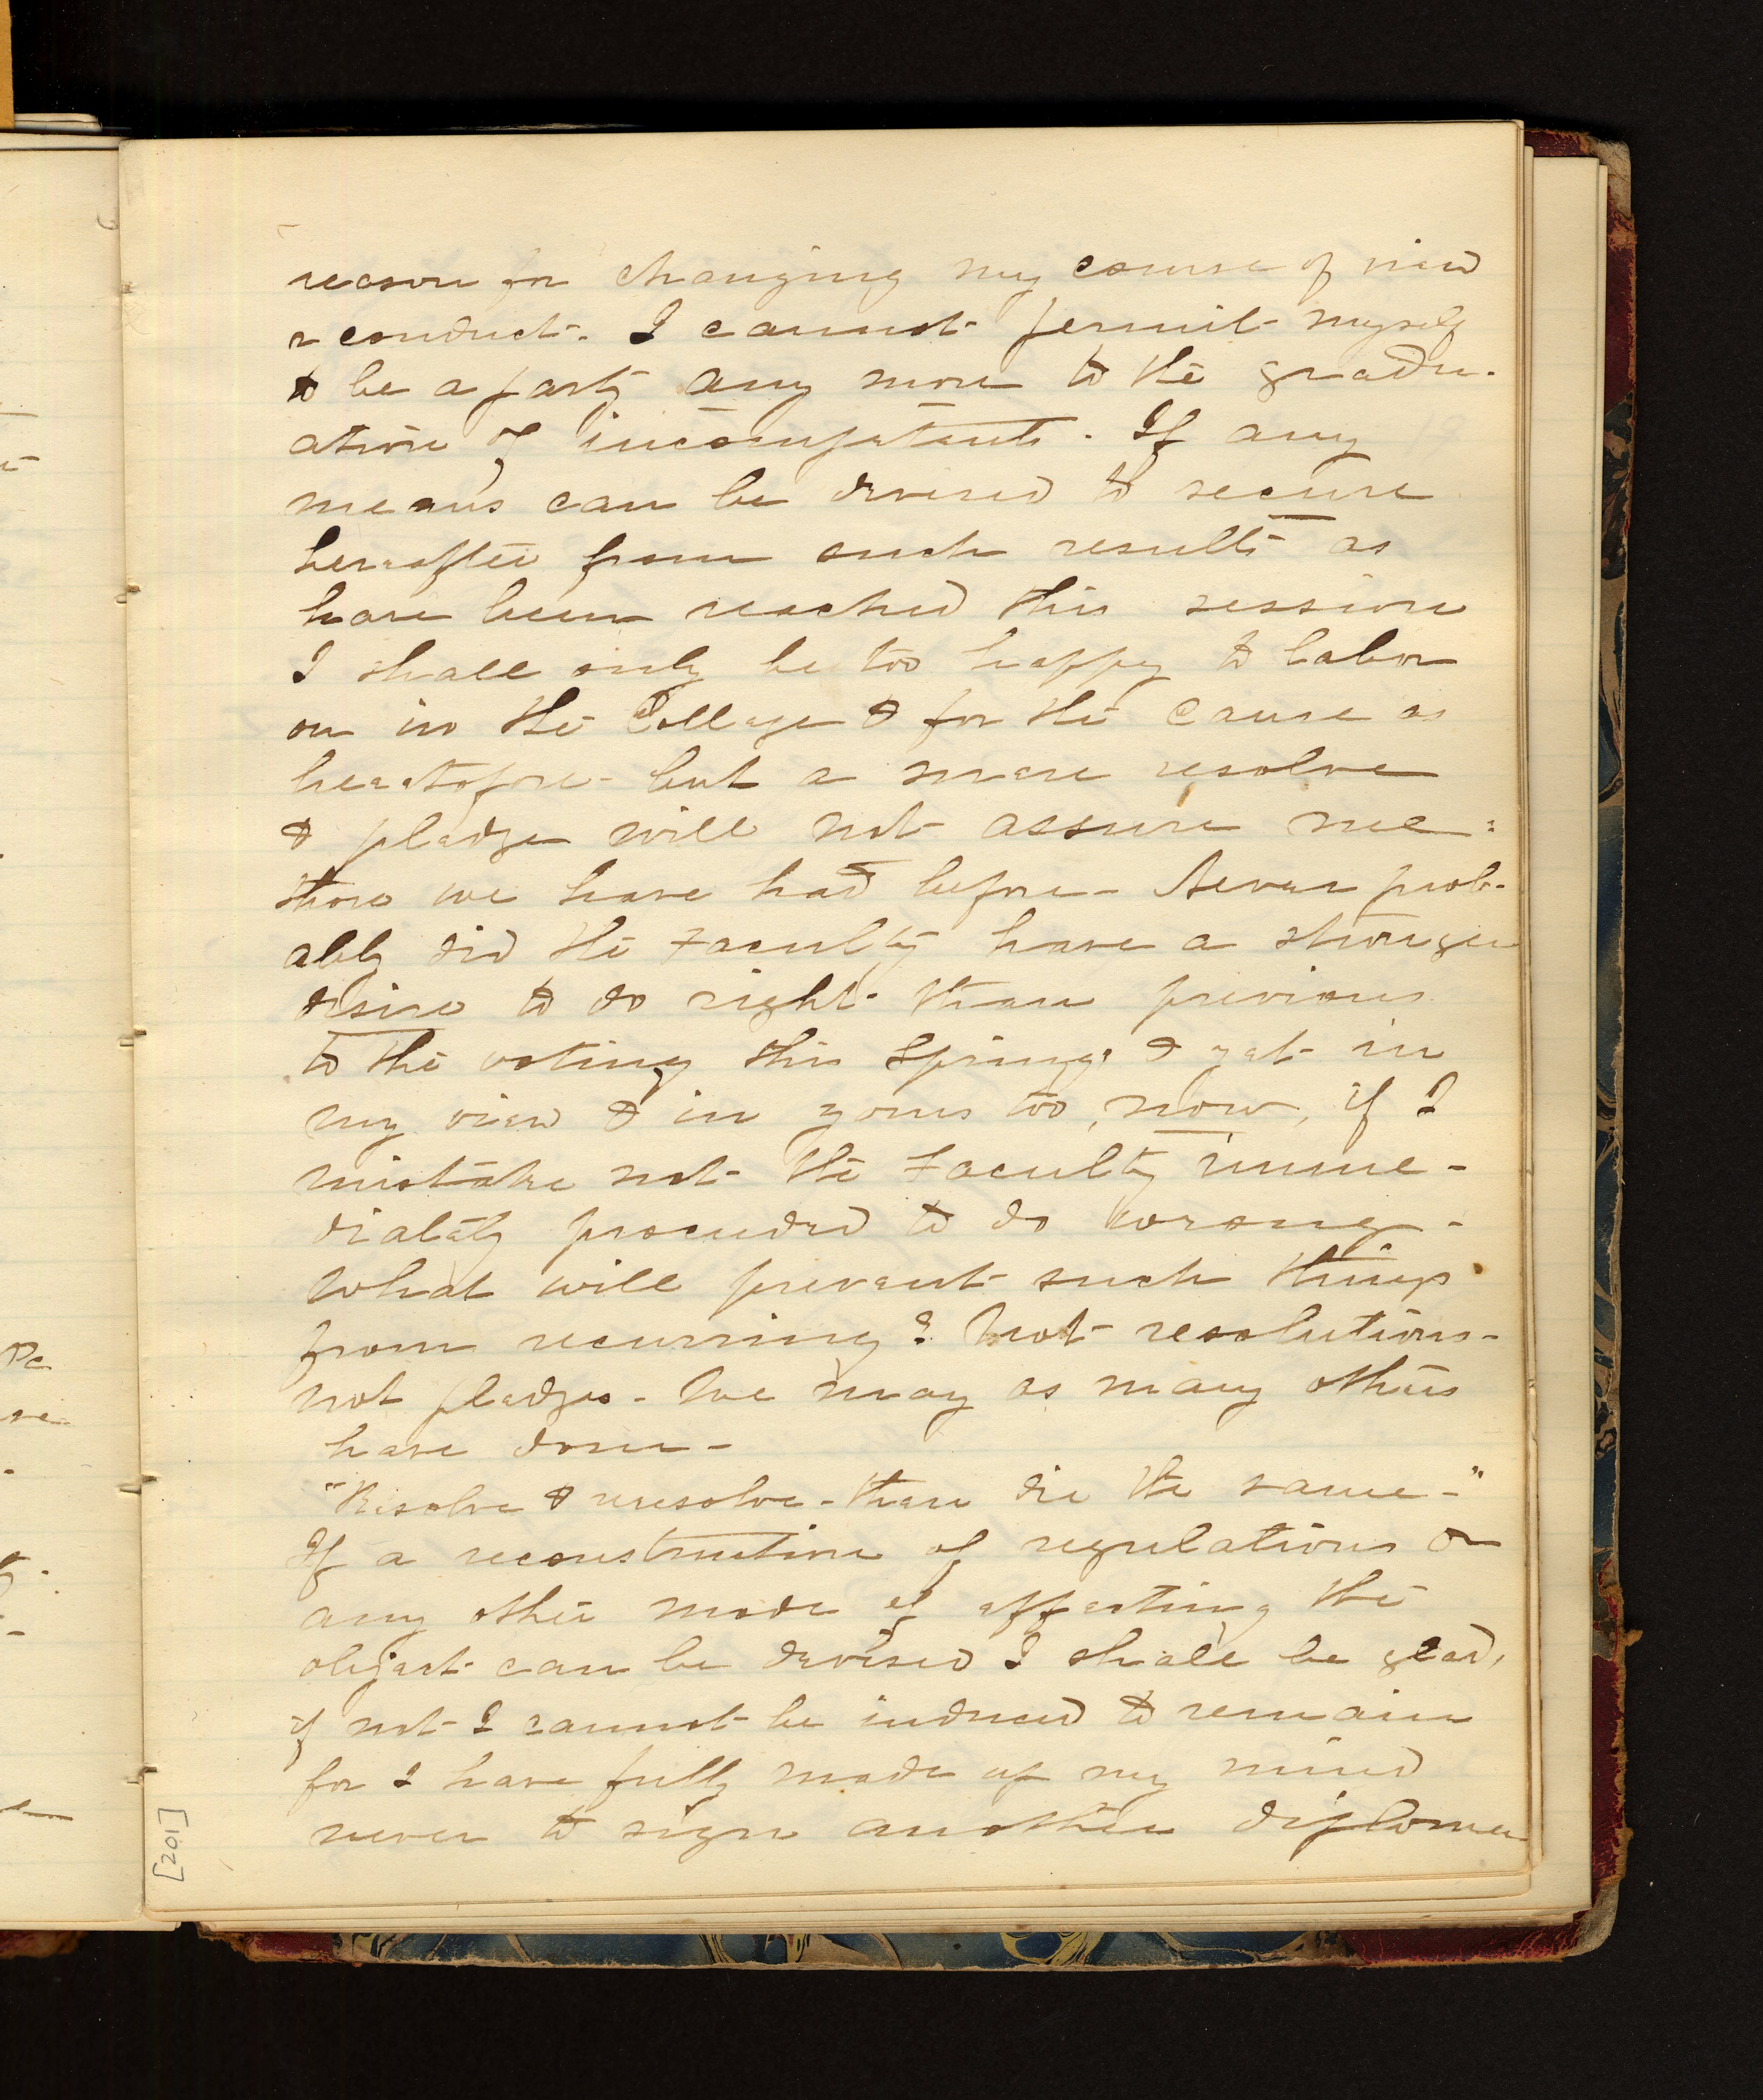 reason for changing my course of view
& conduct. I cannot permit myself
to be a party any more to the gradu-
ation of incompetents. If any
means can be devised to secure
hereafter from such results as
have been reached this session
I shall only be too happy to labor
on in the College & for the cause as
heretofore - but a mere resolve
& pledge will not assure me:
those we have had before - Never prob-
ably did the Faculty have a stronger
desire to do right than previous
to the voting this Spring, & yet in
my view & in yours too, now, if I
mistake not the Faculty imme-
diately proceeded to do wrong -
What will prevent such things
from recurring? Not resolutions -
not pledges - We may as many others
have done -
"Resolve & reresolve - then die the same -"
If a reconstruction of regulations or
any other mode of effecting the
object can be devised I shall be glad,
if not I cannot be induced to remain
for I have fully made up my mind
never to sign another diploma
[201]